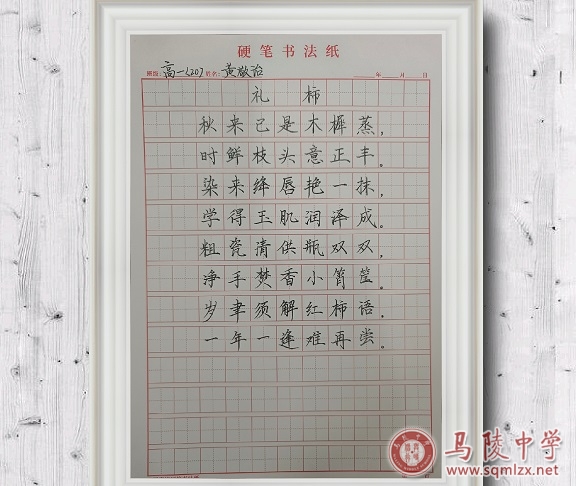 硬笔书法纸
班级:高一(20)姓名:黄敬治 年 月 日
礼 柿
秋来已是木樨蒸,
时鲜枝头意正丰。
染来绛唇艳一抹,
学得玉肌润泽成。
粗瓷清供瓶双双,
净手焚香小筲筐。
岁聿须解红柿语,
一年一逢难再尝。
马陵中学
www.sqmlzx.net